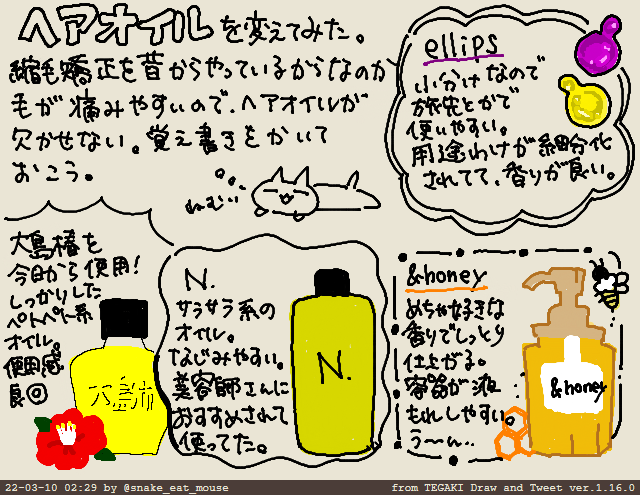 ヘアオイルを変えてみた。
縮毛矯正を昔からやっているからなのか
毛が痛みやすいので、ヘアオイルが
欠かせない。覚え書きをかいて
おこう。
ねむ…
ellips
小分けなので
旅先とかで
使いやすい。
用途わけが細分化
されてて、香りが良い。
大島椿を
今日から使用!
しっかりした
ペトペト系
オイル。
使用感
良◎
大島椿
N.
サラサラ系の
オイル。
なじみやすい。
美容師さんに
おすすめされて
使ってた。
N.
&honey
めちゃ好きな
香りでしっとり
仕上がる。
容器が液
もれしやすい。
う〜ん…
&honey
22-03-10 02:29 by @snake_eat_mouse
from TEGAKI Draw and Tweet ver.1.16.0